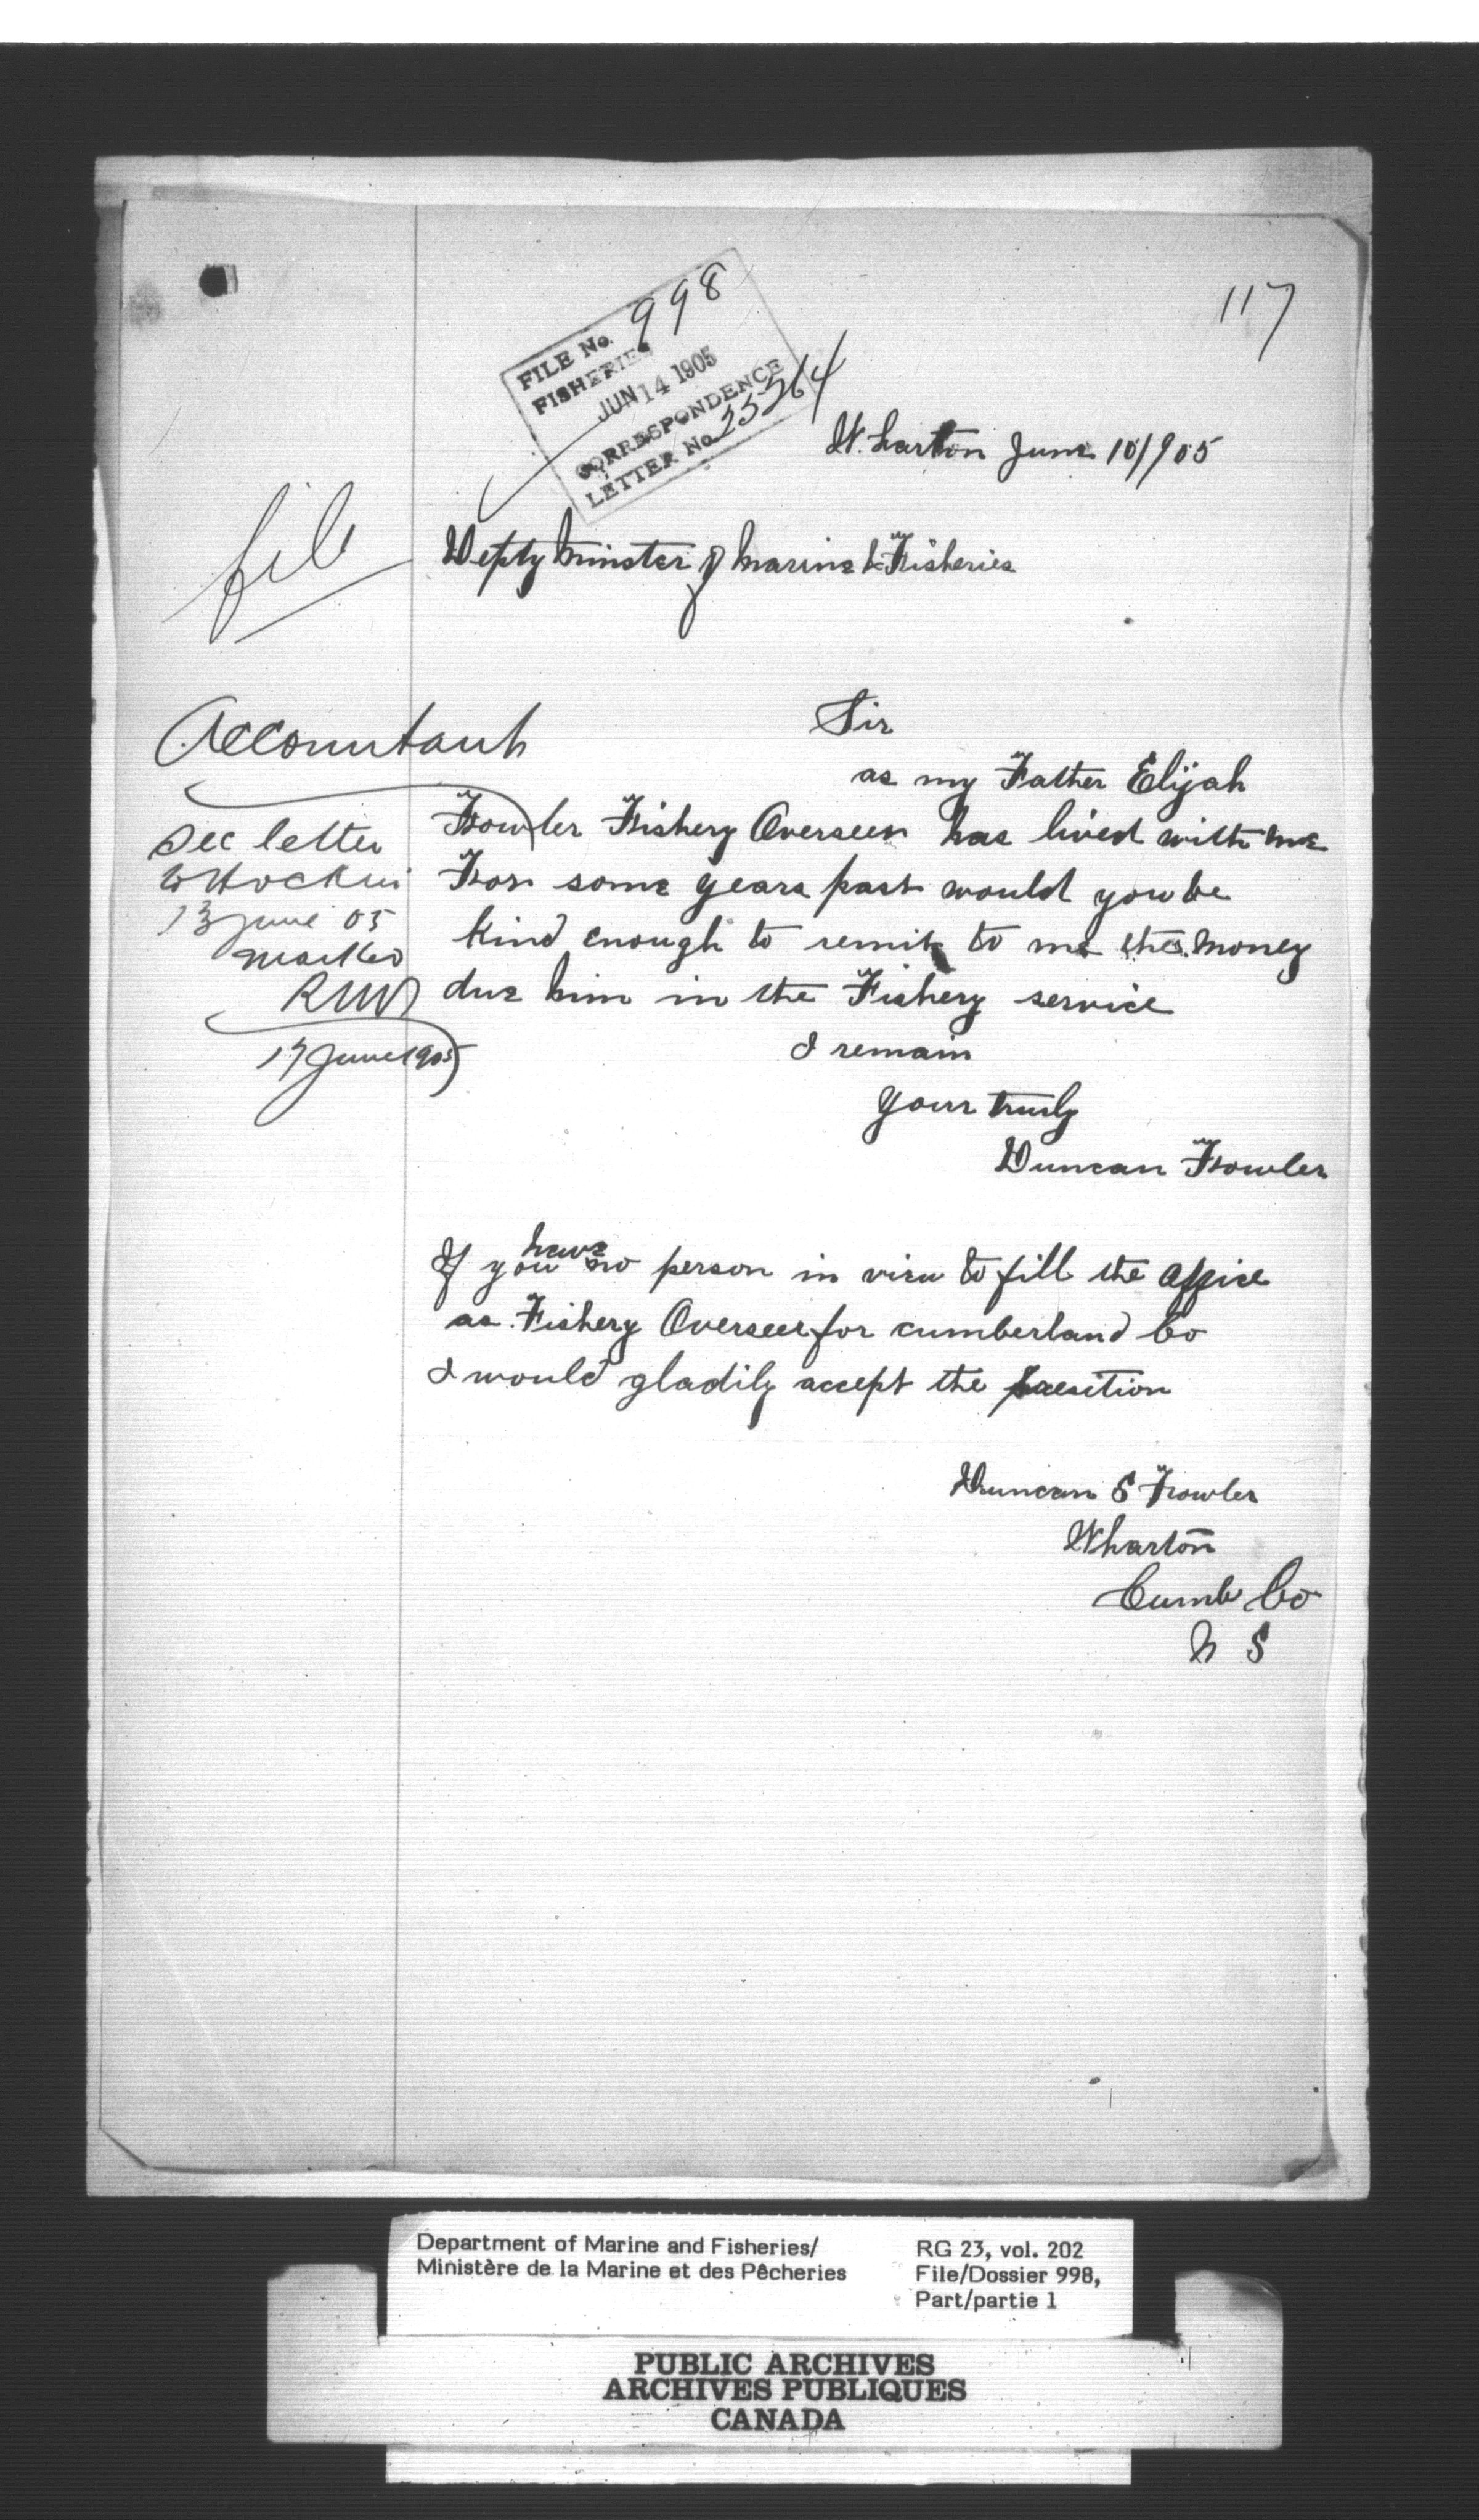 117
FILE No. 998
FISHERIES
JUN 14 1905
CORRESPONDENCE
LETTER No.
Wharton June 10/905
file
Depty Minister of Marine & Fisheries
Accountant
Sir
as my Father Elijah
Fowler Fishery Overseer has lived with me
For some years past would you be
kind enough to remit to me the money
due him in the Fishery service
See letter
to Hockin
13 June 05
marked
17 June 1905
I remain
Your truly
Duncan Fowler
If you have no person in view to fill the office
as Fishery Overseer for cumberland Co
I would gladily accept the
Duncan S Fowler
Wharton
Cumb Co
N S
Department of Marine and Fisheries/
Ministère de la Marine et des Pêcheries
RG 23, vol. 202
File/Dossier 998,
Part/partie 1
PUBLIC ARCHIVES
ARCHIVES PUBLIQUES
CANADA